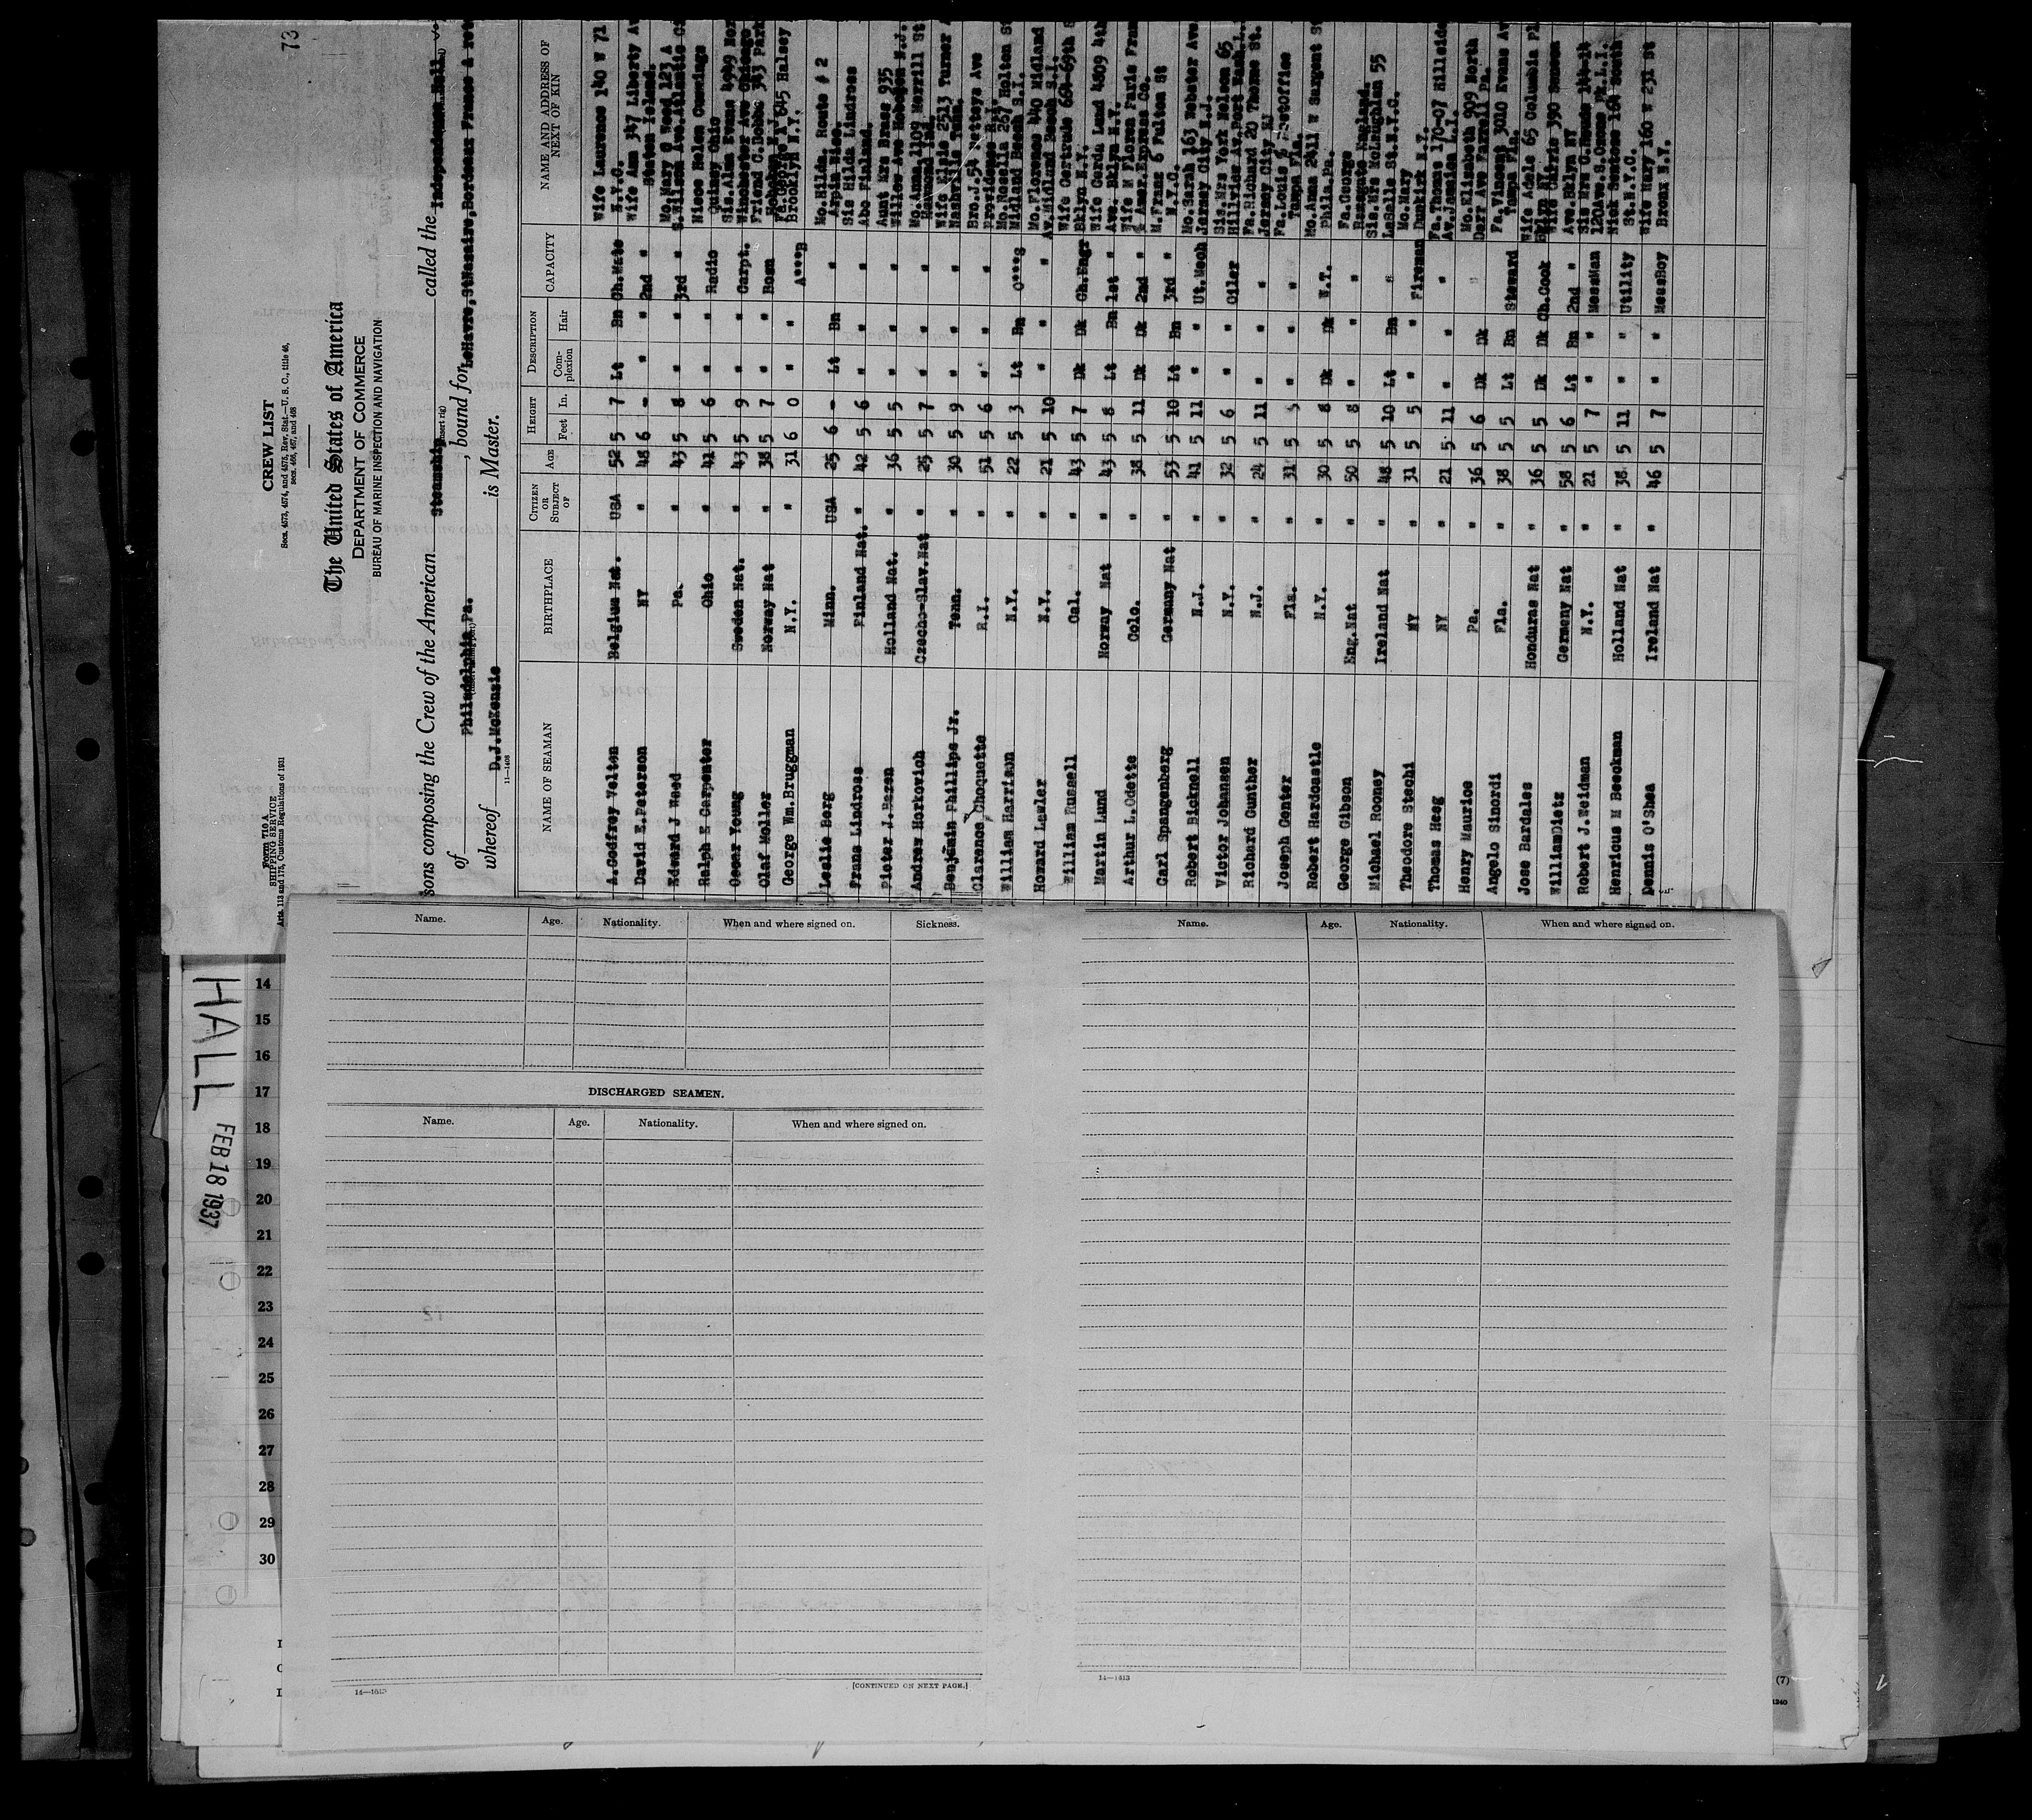 73
Form 710 A
SHIPPING SERVICE
Arts. 113 and 175, Customs Regulations of 1931
CREW LIST
Secs. 4573, 4574, and 4575, Rev. Stat.—U. S. C., title 46,
secs. 466, 467, and 468
The United States of America
DEPARTMENT OF COMMERCE
BUREAU OF MARINE INSPECTION AND NAVIGATION
sons composing the Crew of the American Steamship called the Independence Hall
of Philadelphia Pa. , bound for LeHavre,StNazaire,Bordeaux France & ret
whereof D.J.McKenzie is Master.
11—1403
NAME OF SEAMAN BIRTHPLACE CITIZEN OR SUBJECT OF AGE HEIGHT Feet In. DESCRIPTION Com-plexion Hair CAPACITY NAME AND ADDRESS OF NEXT OF KIN
A.Godfrey Velten Belgium Nat. USA 52 5 7 Lt Bn Ch.Mate Wife Laurence 140 W 71 N.Y.C.
David E.Peterson NY " 48 6 - " " 2nd " Wife Ann 347 Liberty Av Staten Island.
Edward J Weed Pa. " 43 5 8 " " 3rd " Mo.Mary G Weed 123 A
Ralph E Carpenter Ohio " 41 5 6 " " Radio Niece Helen Cummings Quincy Ohio
Oscar Young Sweden Nat. " 43 5 9 " " Carpt. Sis.Alma Evans 4949 Nor Winchester Ave Chicago
Olaf Moller Norway Nat " 38 5 7 " " Bosn Friend C.Dobbs 343 Park Hoboken N.J.
George Wm.Bruggman N.Y. " 31 6 0 " " A***B Fa.George A 645 Halsey Brooklyn N.Y.
Leslie Berg Minn. USA 25 6 - Lt Bn " Mo.Hilda. Route # 2 Arpin Wisc.
Frans Lindross Finland Nat. " 42 5 6 " " " Sis Hilda Lindross Abo Finland.
Pieter J.Baren Holland Nat. " 36 5 5 " " " Aunt Mrs Brass 935 Willow Ave Hoboken N.J.
Andrew Horkovich Czecho-Slav.Nat " 25 5 7 " " " Mo.Anna 1109 Merrill St Hammond Ind.
Benjamin Phillips Jr. Tenn. " 30 5 9 " " " Wife Elsie 2513 Turner Nashville Tenn.
Clarence Choquette R.I. " 51 5 6 " " " Bro.J.54 Ave Providence R.I.
William Harrison N.Y. " 22 5 3 Lt Bn O***S Mo.Rosella 267 Holton St Midland Beach S.I.
Howard Lawler N.Y. " 21 5 10 " " " Mo.Florence 440 Midland Av.Midland Beach S.I.
William Russell Cal. " 43 5 7 Dk Dk Ch.Engr Wife Gertrude 664-69th S Bklyn N.Y.
Martin Lund Norway Nat " 43 5 8 Lt Bn 1st " Wife Gerda Lund 4809 4th Ave. Bklyn N.Y.
Arthur L.Odette Colo. " 38 5 11 Dk Dk 2nd " Wife M Florem Paris Fran % Amer.Express Co.
Carl Spangenberg Germany Nat " 53 5 10 Lt Bn 3rd " M.Franz 6 Fulton St N.Y.C.
Robert Bicknell N.J. " 41 5 11 " " Ut.Mech Mo.Sarah 163 Webster Ave. Jersey City N.J.
Victor Johansen N.Y. " 32 5 6 " " Oiler Sis.Mrs York Nelson 65
Richard Gunther N.J. " 24 5 11 " " " Fa.Richard 20 Thorne St. Jersey City NJ
Joseph Genter Fla. " 31 5 5 " " " Fa.Louis G Postoffice Tampa Fla.
Robert Hardcastle N.Y. " 30 5 8 Dk Dk W.T. Mo.Anna 2411 W Sargent St Phila.Pa.
George Gibson Eng.Nat " 50 5 8 " " " Fa.George Ramsgate England.
Michael Rooney Ireland Nat " 48 5 10 Lt Bn " Sis.Mrs McLaughlan 55 LaSalle St.N.Y.C.
Theodore Stechi NY " 31 5 5 " " Fireman Mo.Mary Dunkirk N.Y.
Thomas Heeg NY " 21 5 11 " " " Fa.Thomas 170-07 Hillside Av.Jamaica L.I.
Henry Maurice Pa. " 36 5 6 Dk Dk " Mo.Elizabeth 909 North Darr Ave Farrell Pa.
Angelo Sinordi Fla. " 38 5 5 Lt Bn Steward Fa.Vincent 3010 Evans Av Tampa Fla.
Jose Bardales Honduras Nat " 36 5 5 Dk Dk Ch.Cook Wife Adele 65 Columbia Pl Bklyn NY
WilliamDietz Germany Nat " 58 5 6 Lt Bn 2nd " Wife Carrie 390 Ave.Bklyn NY
Robert J.Weidman N.Y. " 21 5 7 " " MessMan Sis Mrs C.Rhode 144-14 120Ave.S.Ozone Pk.L.I.
Henricus M Beeckman Holland Nat " 38 5 11 " " Utility Nick Santoes 164 South St.N.Y.C.
Dennis O'Shea Ireland Nat " 46 5 7 " " MessBoy Wife Mary 160 W 231 St Bronx N.Y.
HALL
FEB 18 1937
14
15
16
17
18
19
20
21
22
23
24
25
26
27
28
29
30
Name. Age. Nationality. When and where signed on. Sickness.
DISCHARGED SEAMEN.
Name. Age. Nationality. When and where signed on.
14—1813
[CONTINUED ON NEXT PAGE.]
Name. Age. Nationality. When and where signed on.
14—1813
(7)
1240